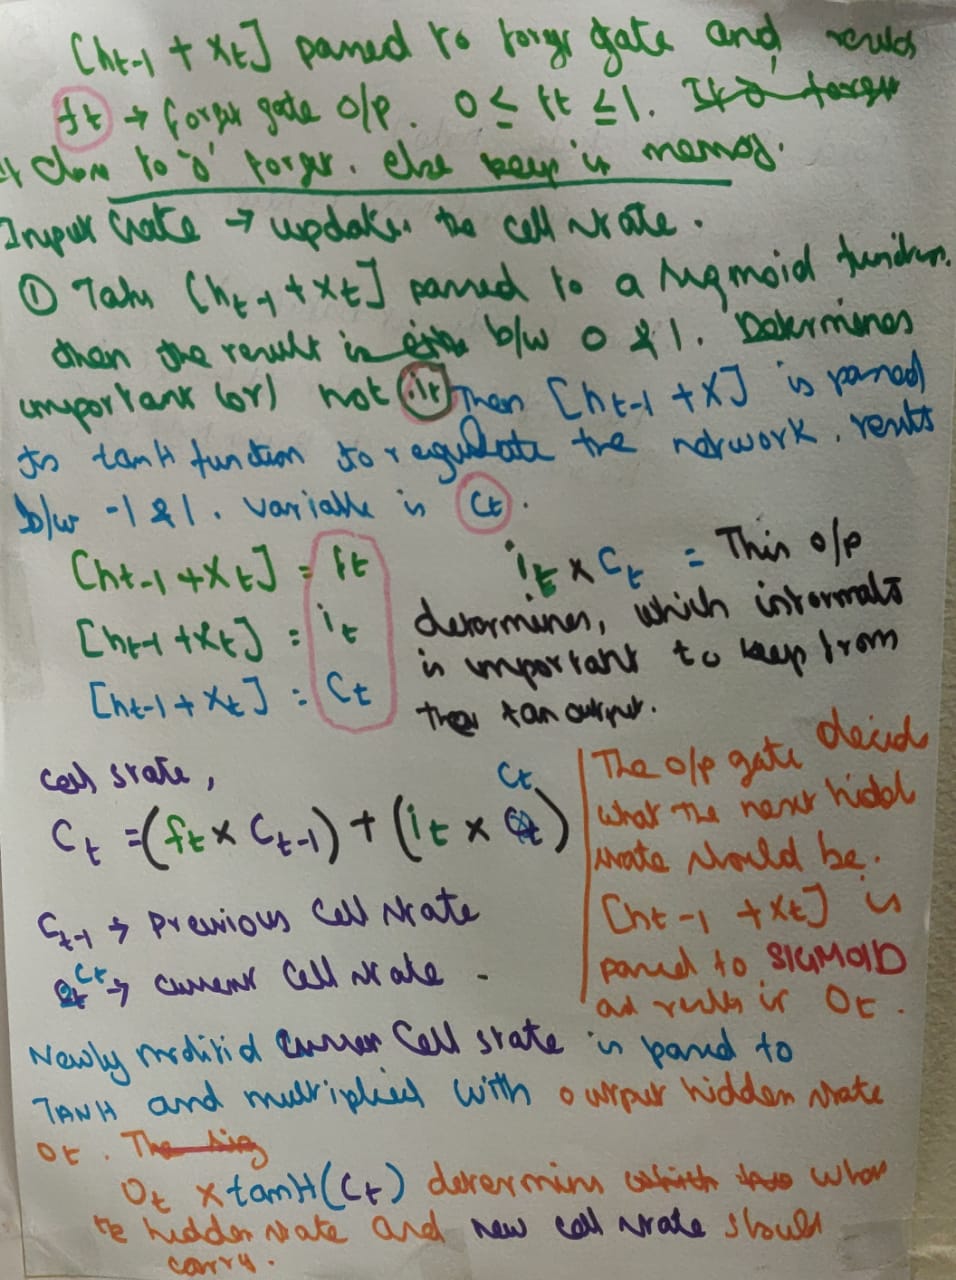 [ht-1 + xt] passed to forget gate and results
ft → forget gate o/p. 0 ≤ ft ≤ 1. If 0' forget
If close to '0' forget. Else keep in memory.
Input Gate → updates the cell state.
① Takes [ht-1 + xt] passed to a sigmoid function.
then the result is b/w 0 & 1. Determines
important (or) not it Then [ht-1 + x] is passed
to tanH function to regulate the network. results
b/w -1 & 1. variable is Ct.
[ht-1 + Xt] = ft
[ht-1 + Xt] = it
[ht-1 + Xt] = Ct
it x Ct = This o/p
determines, which informats
is important to keep from
tan output.
cell state,
Ct = (ft x Ct-1) + (it x Ct)
Ct-1 → previous cell state
Ct → current cell state
The o/p gate decides
what the next hidd
state should be.
[ht-1 + Xt] is
passed to SIGMOID
and results is Ot.
Newly modifid current cell state is passed to
TANH and multiplied with output hidden state
Ot. The
Ot x tanH(Ct) determins which two what
the hidden state and new cell state should
carry.